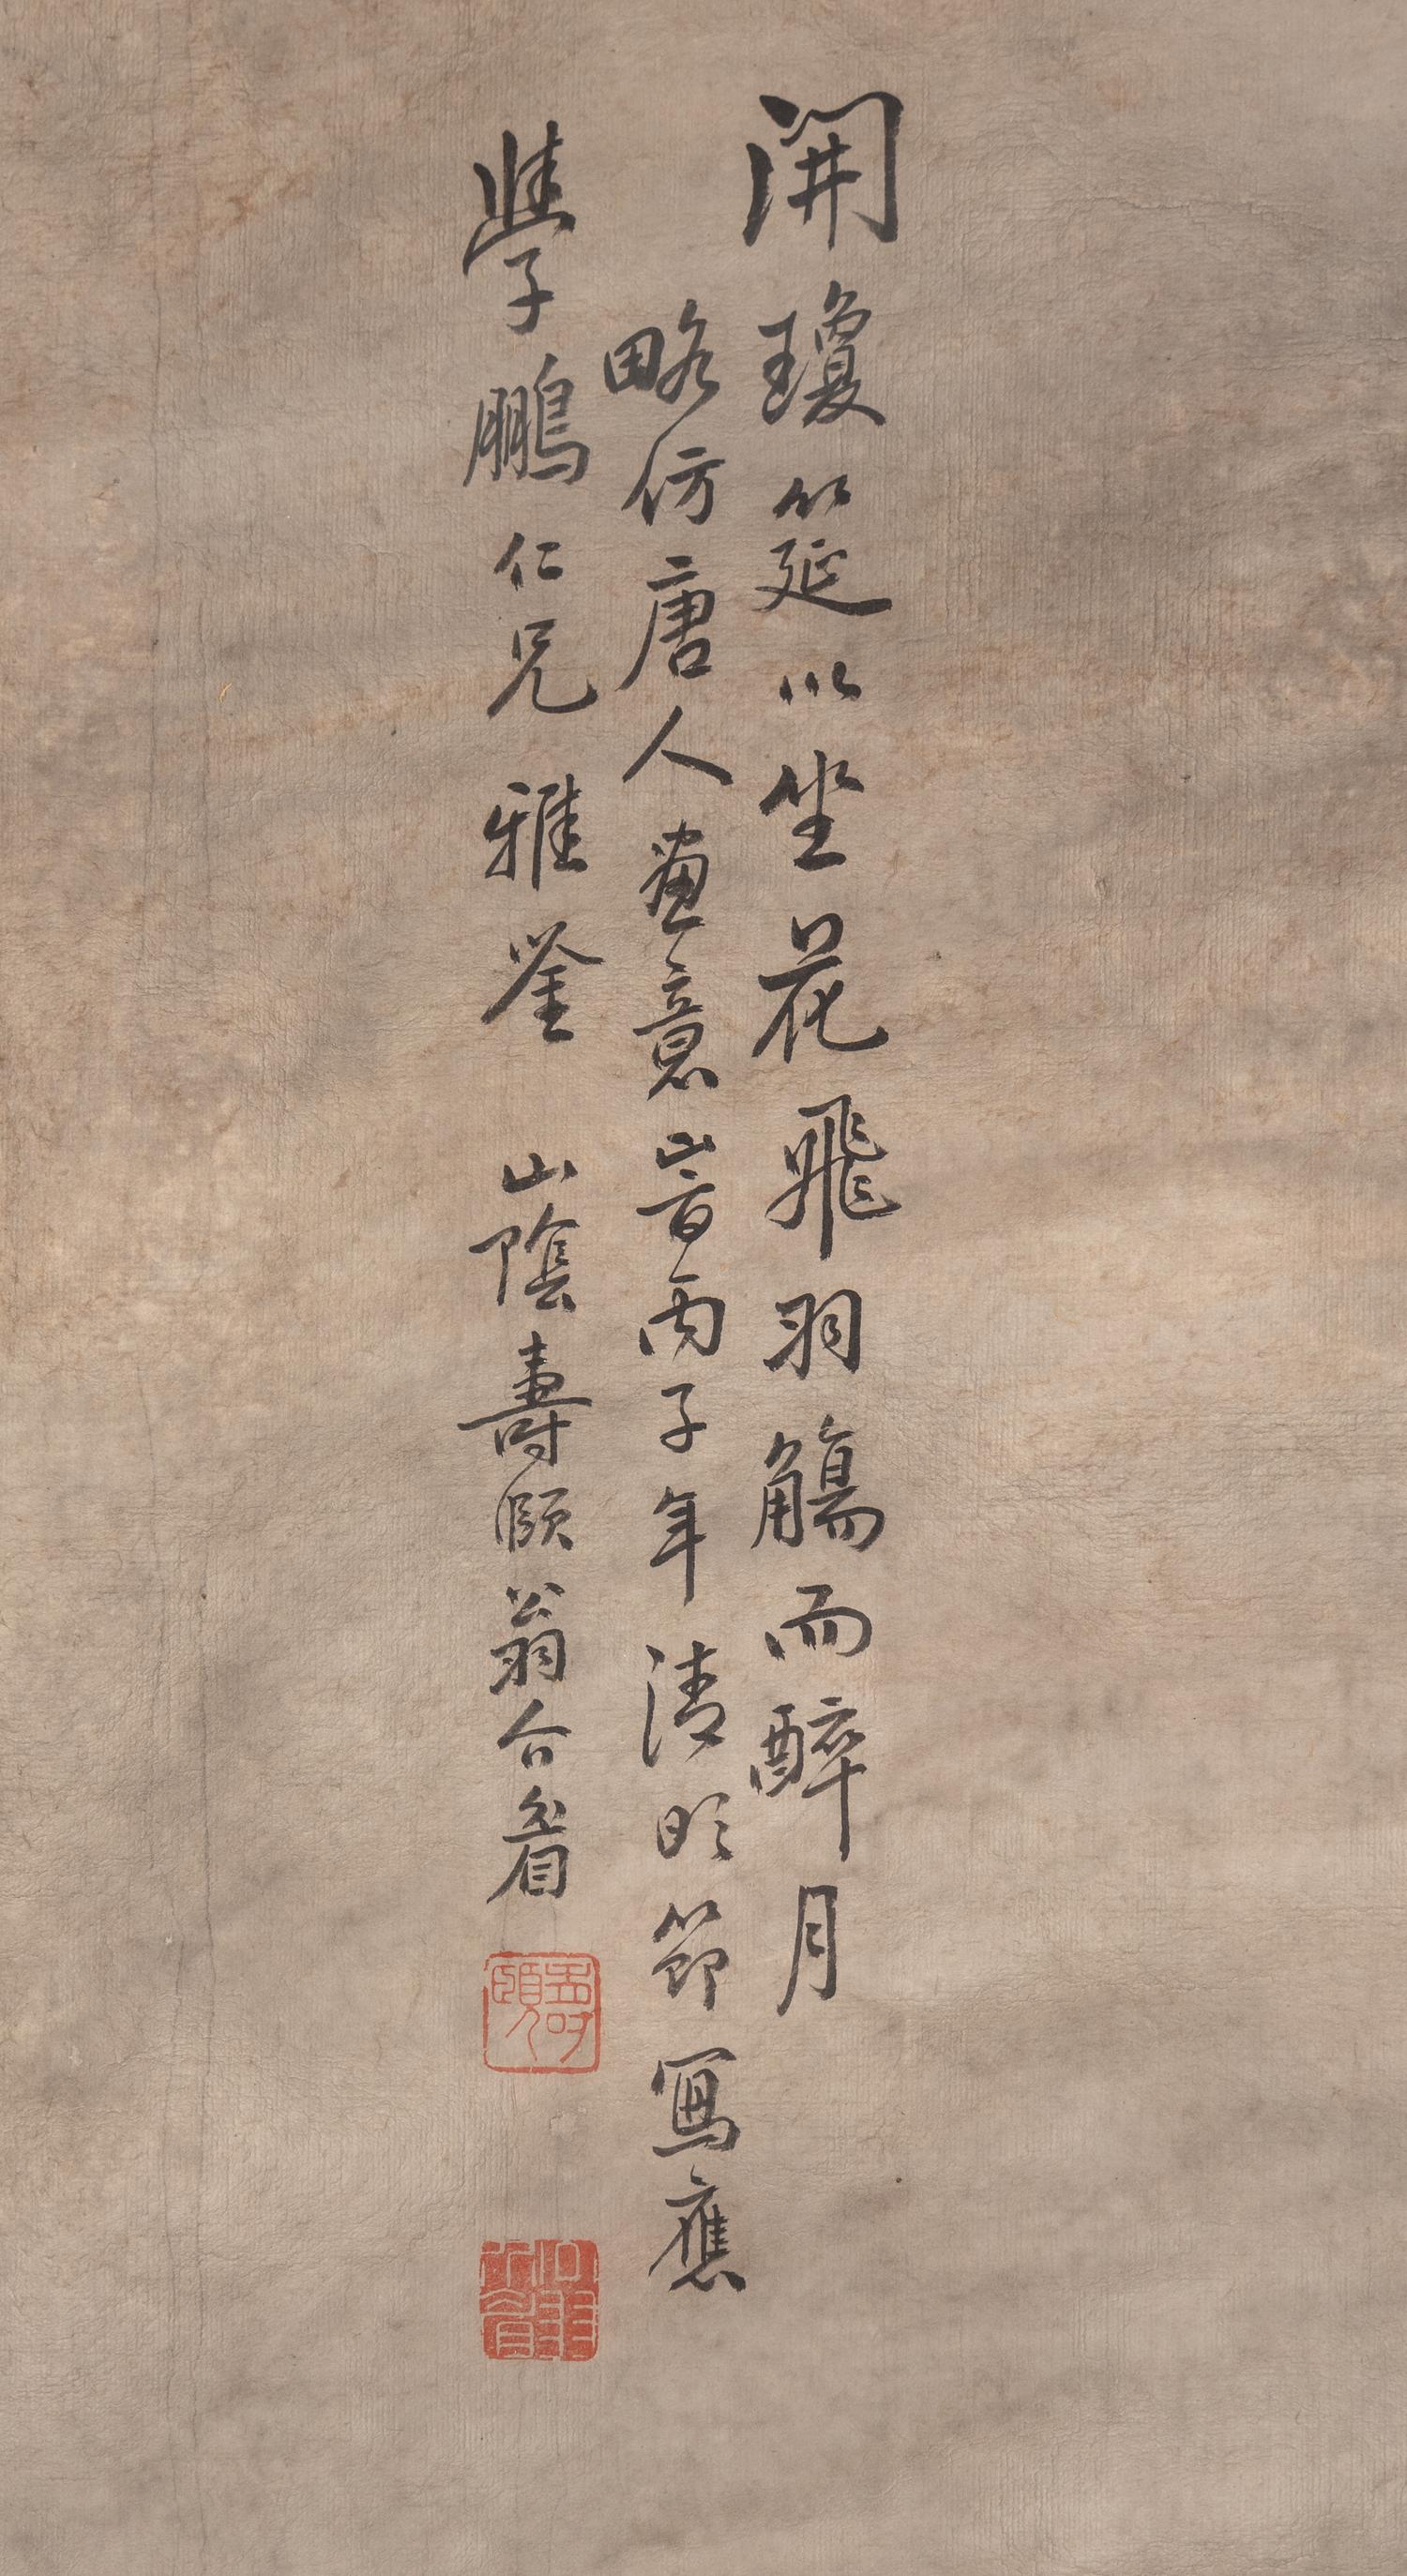 開瓊筵以坐花飛羽觴而醉月
略仿唐人畫意旹丙子年清明節寫應
學鵬仁兄雅鉴 山陰壽頤翁
壽頤